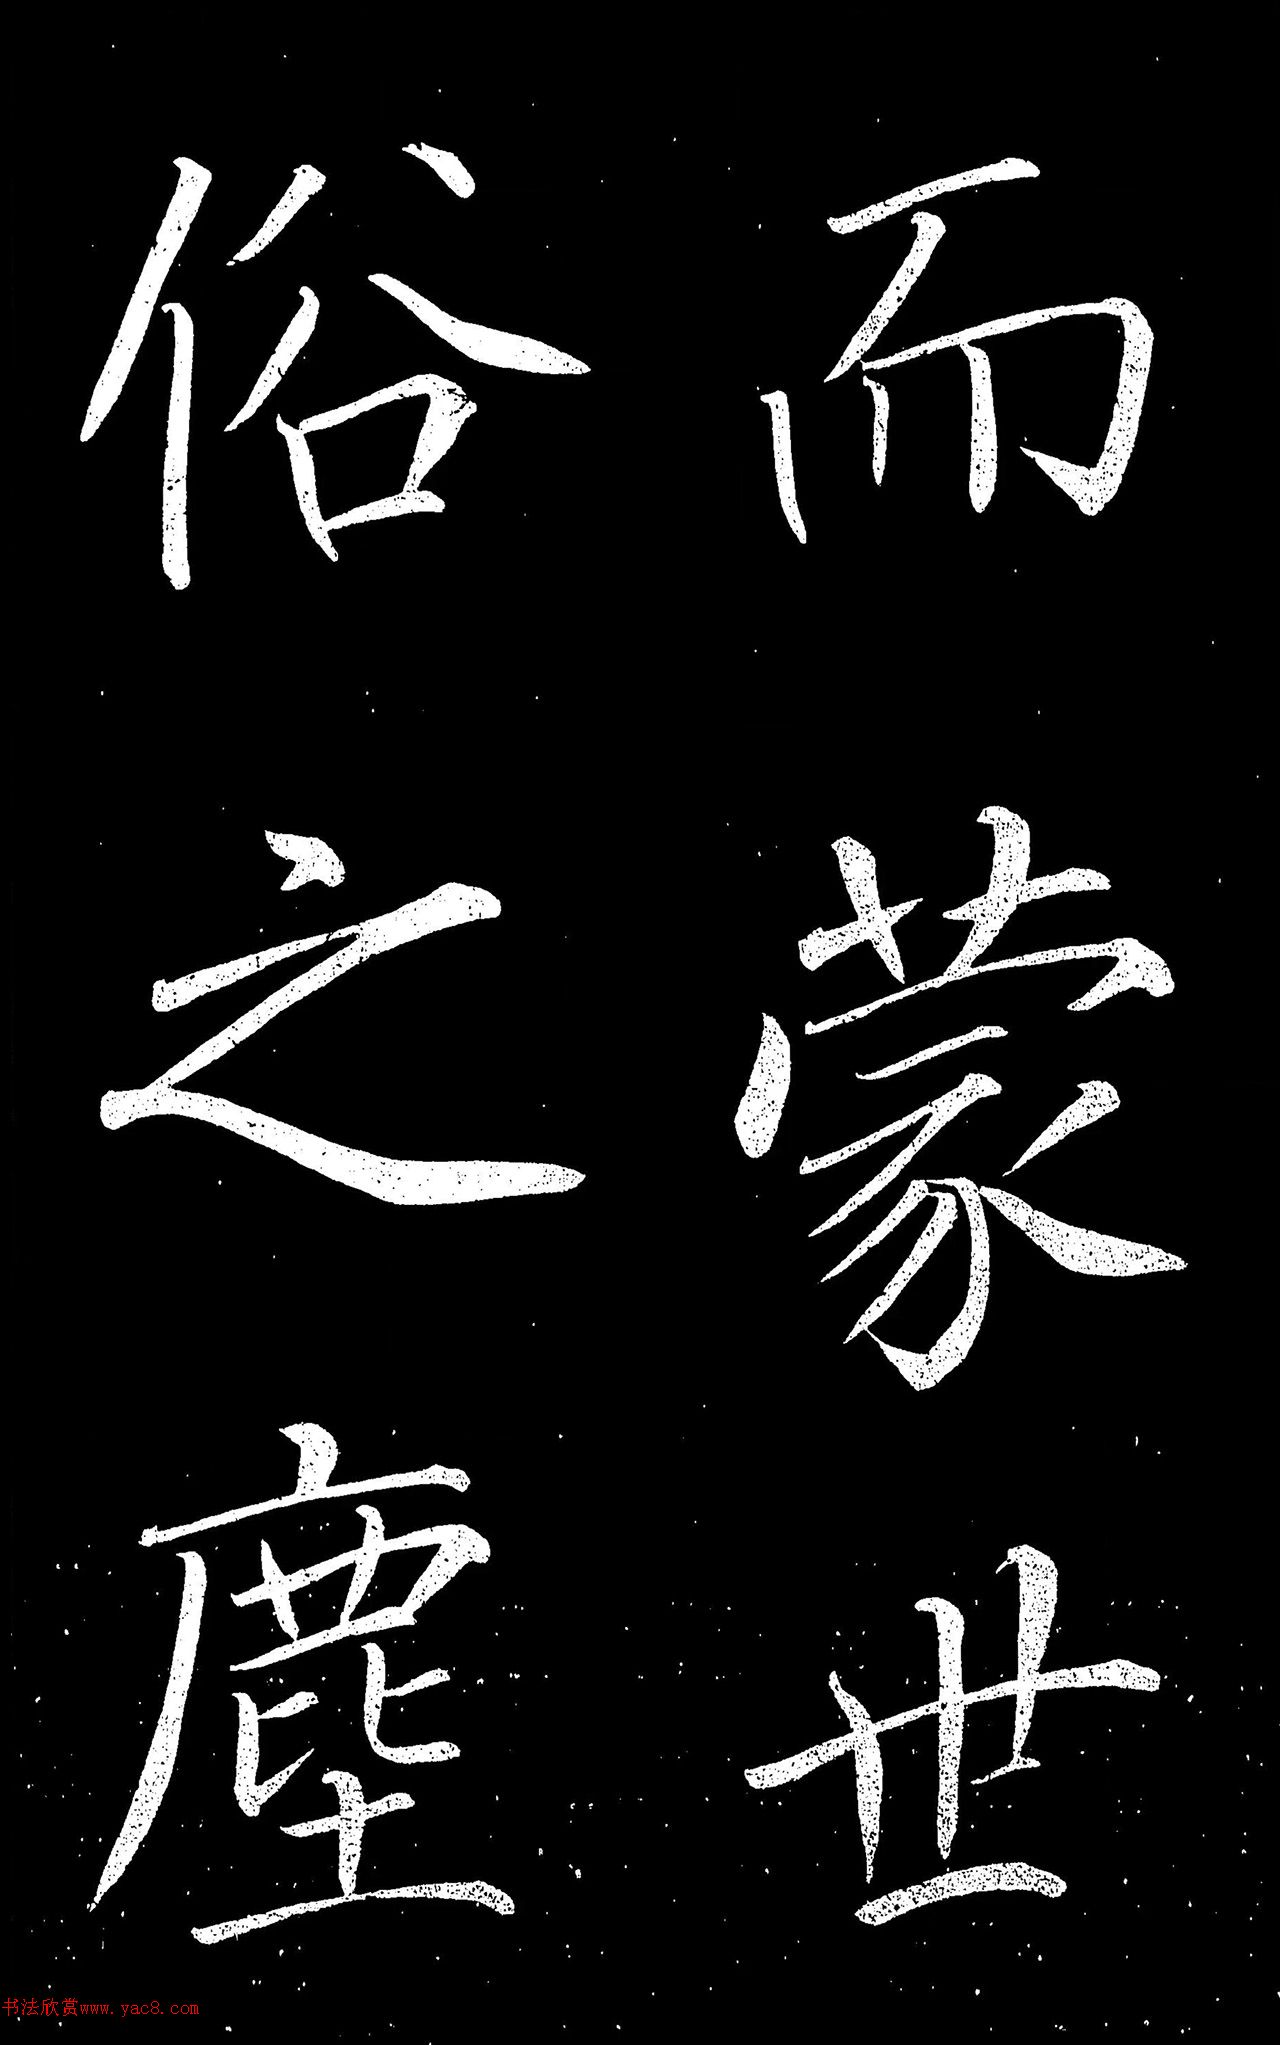 而蒙世
俗之塵
书法欣赏www.yac8.com